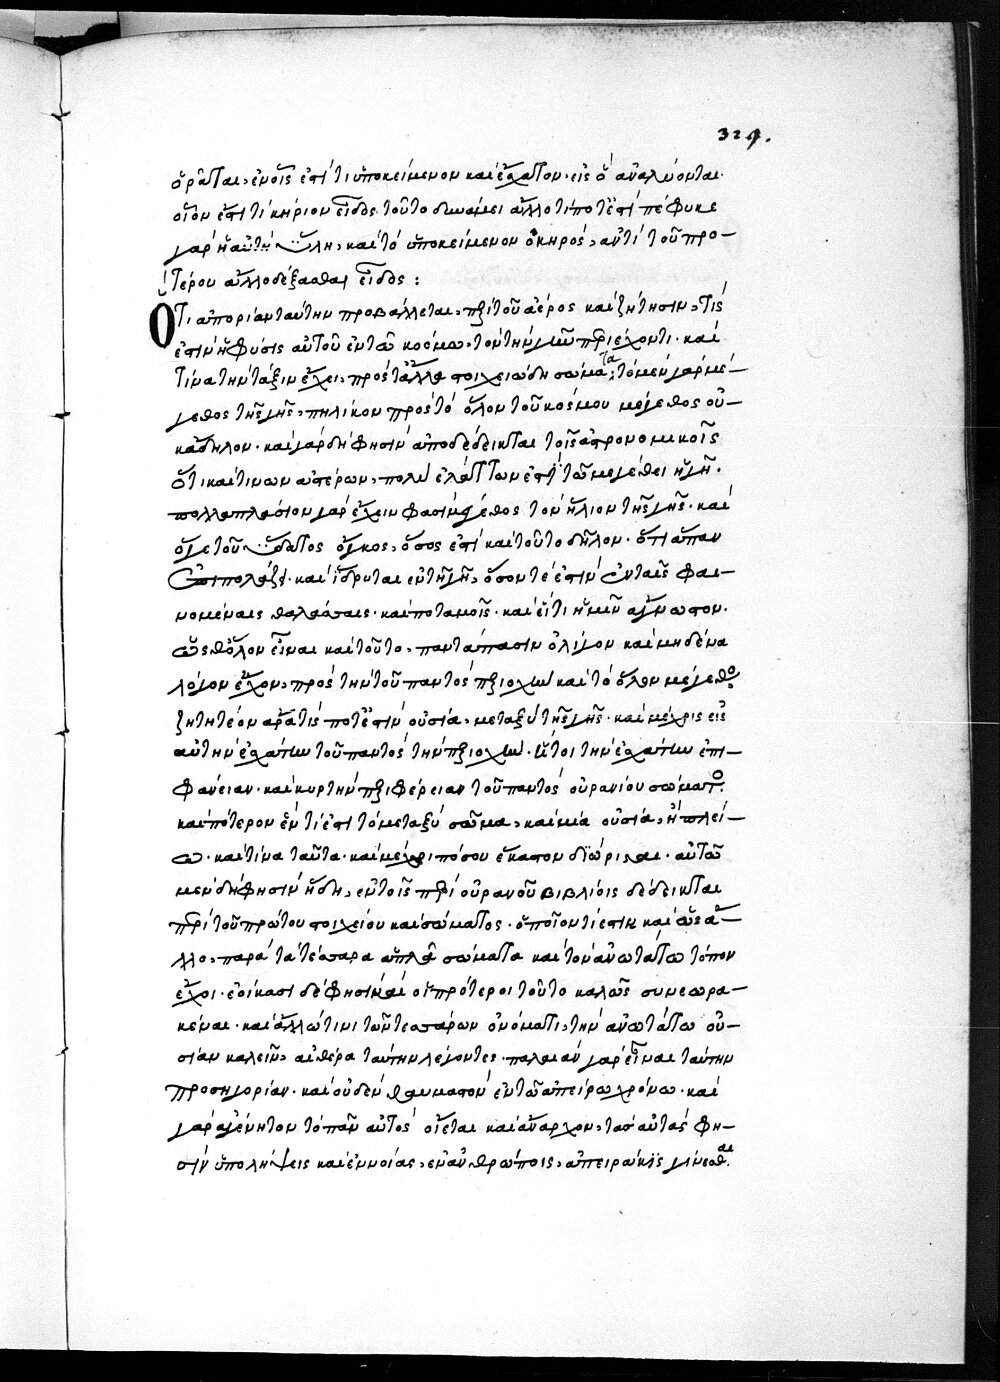 329.
ὁρᾶται, ἐν οἷς ἐστί τι ὑποκείμενον καὶ ἔσχατον· εἰς ὃ ἀναλύονται.
οἷόν ἐστί τι κηρίον εἶδος τοῦτο δυνάμει ἄλλο τί ποτ' ἐστί πέφυκε
γὰρ ἡ αὐτὴ ὕλη, καὶ τὸ ὑποκείμενον ὁ κηρός, ἀντὶ τοῦ προ-
τέρου ἄλλο δέξασθαι εἶδος:
Ὅτι ἀπορίαν ταύτην προβάλλεται, περὶ τοῦ ἀέρος καὶ ζήτησιν, τίς
ἐστιν ἡ φύσις αὐτοῦ ἐν τῷ κόσμῳ, τὸν τὴν γῆν περιέχοντι· καὶ
τίνα τὴν τάξιν ἔχει, πρὸς τἆλλα στοιχειώδη σώματα· τὸ μὲν γὰρ μέ-
γεθος τῆς γῆς, πηλίκον πρὸς τὸ ὅλον τοῦ κόσμου μέγεθος οὐ-
κ ἄδηλον· καὶ γὰρ δή φησιν ἀποδέδεικται τοῖς ἀστρονομικοῖς
ὅτι καί τινων ἀστέρων, πολὺ ἐλάττων ἐστὶ τῷ μεγέθει ἡ γῆ·
πολλαπλάσιον γὰρ ἔχειν φασὶ μέγεθος τὸν ἥλιον τῆς γῆς· καὶ
ὅ γε τοῦ ὕδατος ὄγκος, ὅσος ἐστὶ καὶ τοῦτο δῆλον· ὅτι ἅπαν
ἐπιπολάζει· καὶ ἵδρυται ἐν τῇ γῇ, ὅσον τέ ἐστιν ἐν ταῖς φαι-
νομέναις θαλάσσαις· καὶ ποταμοῖς· καὶ εἴ τι ἡμῖν ἄγνωστον·
ὥσθ' ὅλον εἶναι καὶ τοῦτο, παντάπασιν ὀλίγον καὶ μηδένα
λόγον ἔχον, πρὸς τὴν τοῦ παντὸς περιοχὴν καὶ τὸ ὅλον μέγεθος
ζητητέον ἄρα τίς ποτ' ἐστιν οὐσία, μεταξὺ τῆς γῆς· καὶ μέχρις εἰς
αὐτὴν ἐσχάτην τοῦ παντὸς τὴν περιοχήν· ἤτοι τὴν ἐσχάτην ἐπι-
φάνειαν· καὶ κυρτὴν περιφέρειαν τοῦ παντὸς οὐρανίου σώματος.
καὶ πότερον ἕν τί ἐστι τὸ μεταξὺ σῶμα, καὶ μία οὐσία, ἢ πλεί-
ω· καὶ τίνα ταῦτα· καὶ μέχρι πόσου ἕκαστον διώρισται· αὐτῷ
μὲν δή φησιν ἤδη, ἐν τοῖς περὶ οὐρανοῦ βιβλίοις δέδεικται
περὶ τοῦ πρώτου στοιχείου καὶ σώματος· ὁποῖόν τί ἐστιν καὶ ὡς ἄ-
λλο, παρὰ τὰ τέσσαρα ἁπλᾶ σώματα καὶ τὸν ἀνωτάτω τόπον
ἔχοι· ἐοίκασι δέ φησιν καὶ οἱ πρότεροι τοῦτο καλῶς συνεωρα-
κέναι· καὶ ἄλλῳ τινι τῶν τεσσάρων ὀνόματι, τὴν ἀνωτάτω οὐ-
σίαν καλεῖν, αἰθέρα ταύτην λέγοντες· παλαιὰν γὰρ εἶναι ταύτην
προσηγορίαν· καὶ οὐδὲν θαυμαστὸν ἐν τῷ ἀπείρῳ χρόνῳ· καὶ
γὰρ ἀγένητον τὸ πᾶν αὐτὸς οἴεται καὶ ἄναρχον, τὰς αὐτάς φη-
σὶν ὑπολήψεις καὶ ἐννοίας, ἐν ἀνθρώποις, ἀπειράκις γίνεσθαι.